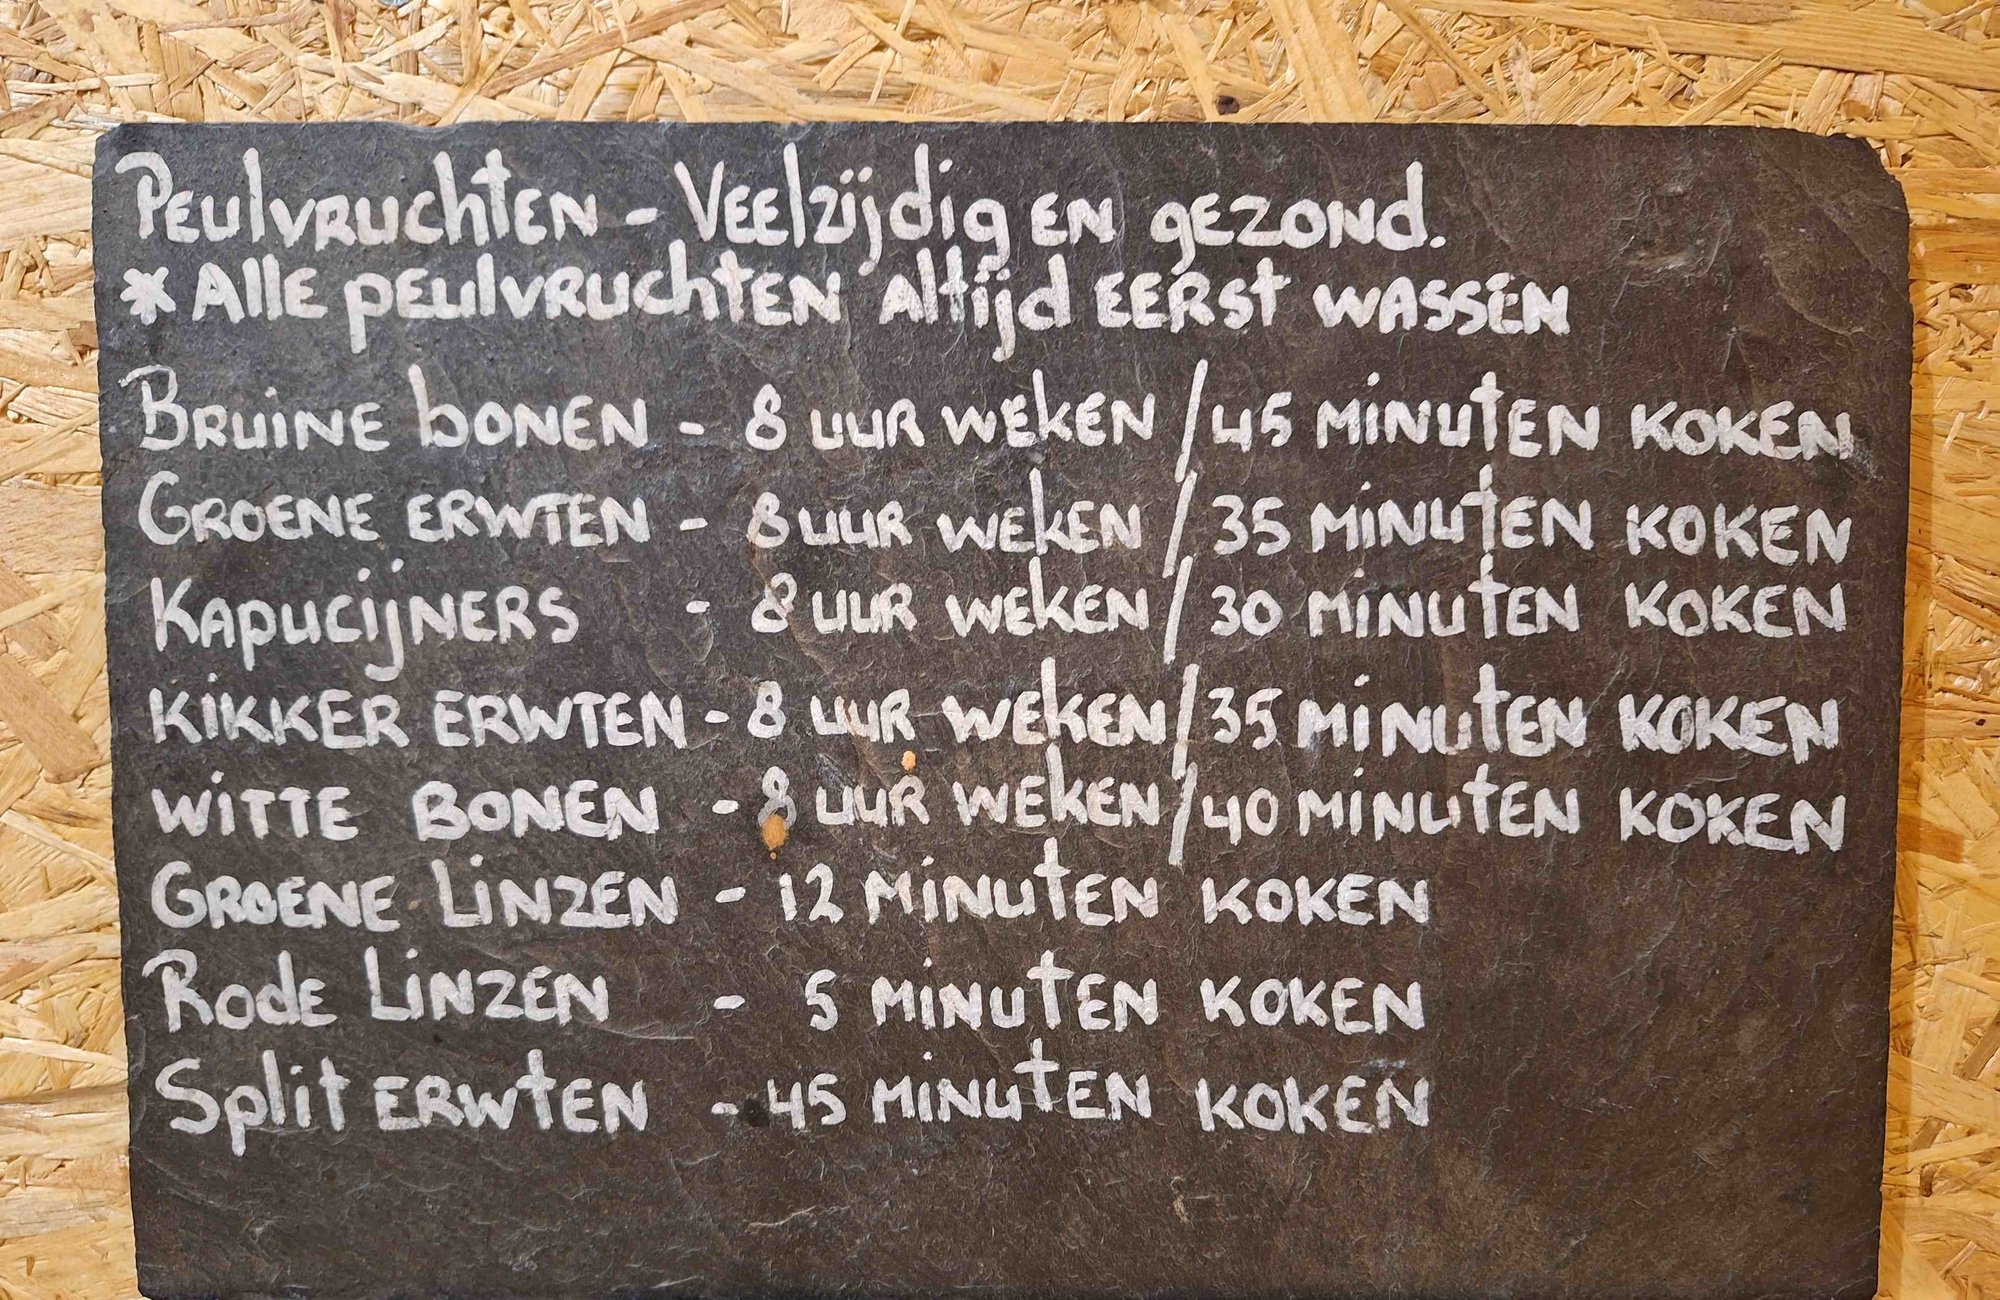 Peulvruchten - Veelzijdig en gezond.
* Alle peulvruchten altijd eerst wassen
Bruine bonen - 8 uur weken / 45 minuten koken
Groene erwten - 8 uur weken / 35 minuten koken
Kapucijners - 8 uur weken / 30 minuten koken
Kikker erwten - 8 uur weken / 35 minuten koken
Witte bonen - 8 uur weken / 40 minuten koken
Groene Linzen - 12 minuten koken
Rode Linzen - 5 minuten koken
Split erwten - 45 minuten koken